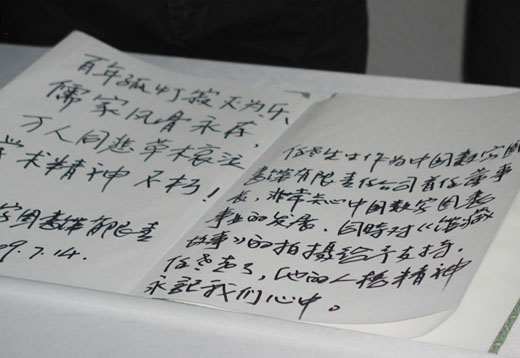 百年孤灯寂灭为乐
儒家风骨永存,
万人同悲草木哀泣
学术精神不朽!
字图书馆有限责
09.7.14.
任先生作为中国数字图
书馆有限责任公司首任董事
长,非常关心中国数字图书
事业的发展。同时对《馆藏
故事》的拍摄给予支持。
任老走了,他的人格精神
永記我们心中。